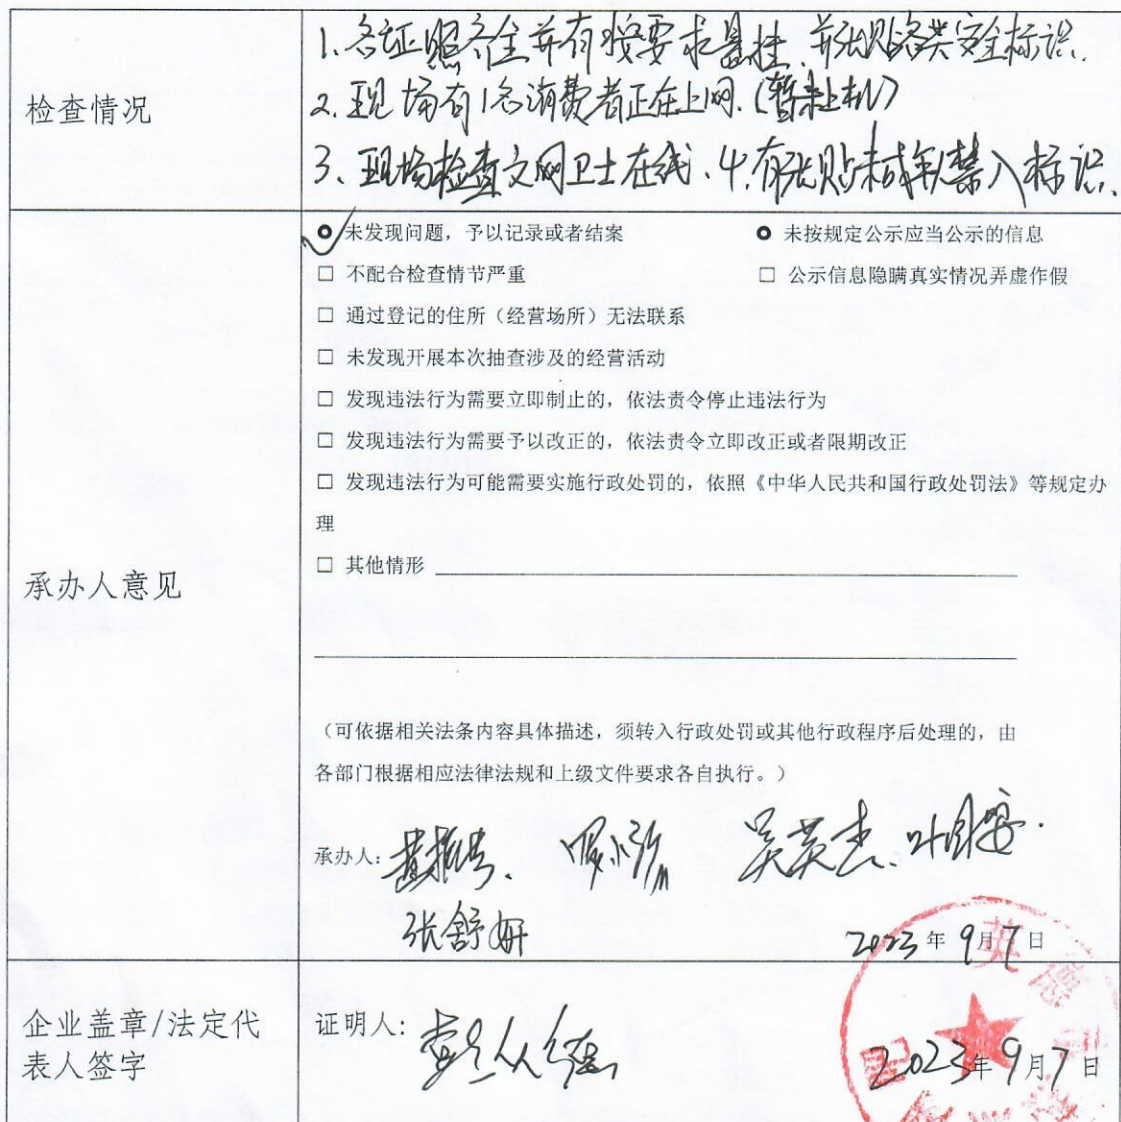 检查情况
1. 各证照齐全并有按要求悬挂、并张贴各类安全标识.
2. 现场有1名消费者正在上网.(暂未上机)
3、现场检查文网卫士在线、4.有张贴未成年禁入标识.
未发现问题，予以记录或者结案
未按规定公示应当公示的信息
□ 不配合检查情节严重
□ 公示信息隐瞒真实情况弄虚作假
□ 通过登记的住所（经营场所）无法联系
□ 未发现开展本次抽查涉及的经营活动
□ 发现违法行为需要立即制止的，依法责令停止违法行为
□ 发现违法行为需要予以改正的，依法责令立即改正或者限期改正
□ 发现违法行为可能需要实施行政处罚的，依照《中华人民共和国行政处罚法》等规定办
理
□ 其他情形
承办人意见
（可依据相关法条内容具体描述，须转入行政处罚或其他行政程序后处理的，由
各部门根据相应法律法规和上级文件要求各自执行。）
承办人: 吴英杰、
张舒妍
2023年9月7日
企业盖章/法定代
表人签字
证明人:
2023年9月7日
英德